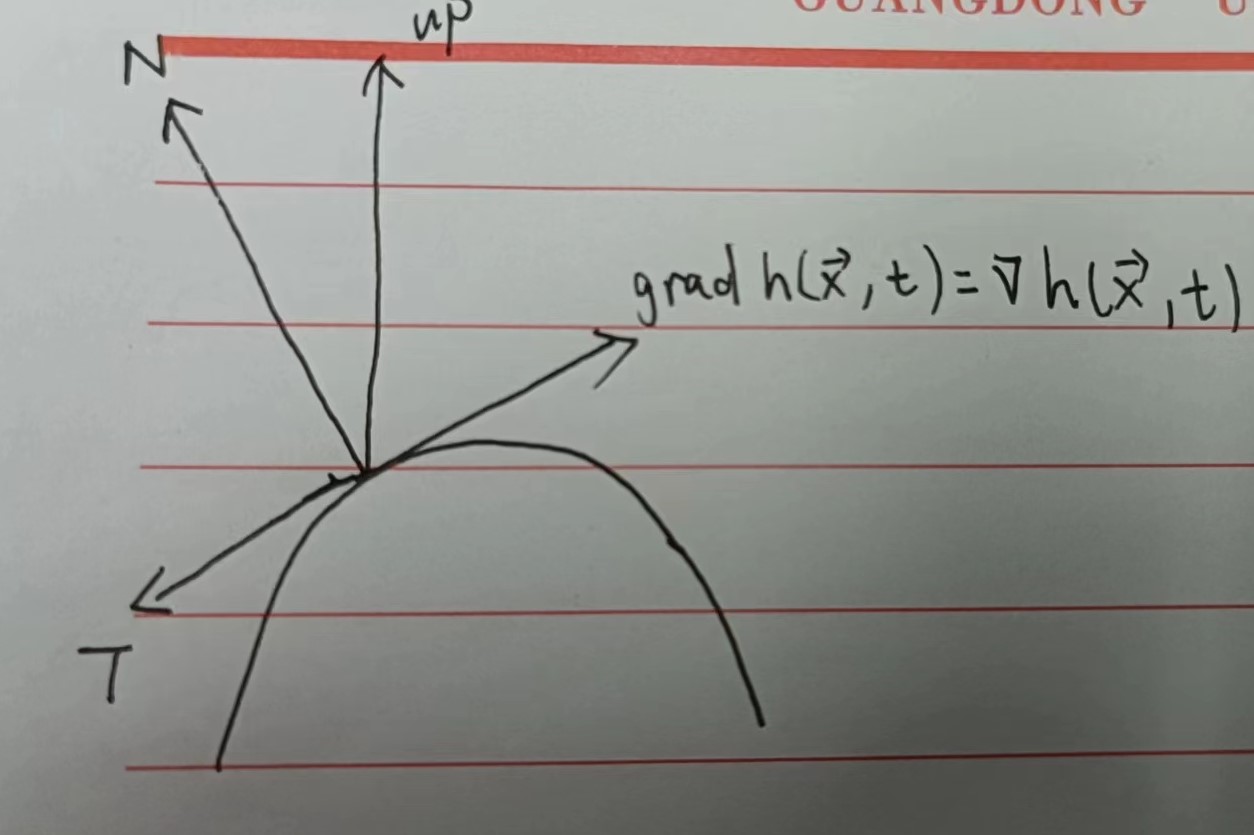 GUANGDONG U
up
N
grad h(x⃗, t) = ∇ h(x⃗, t)
T